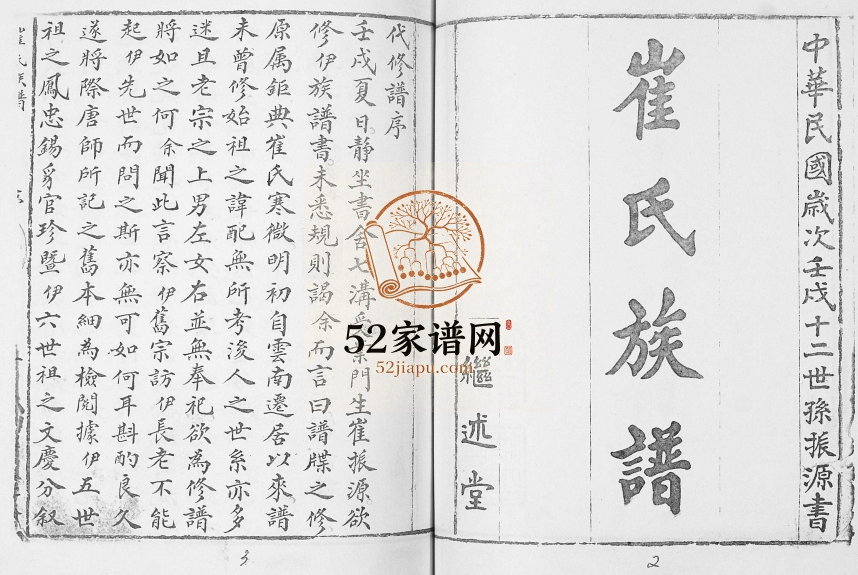 中華民國歲次壬戌十二世孫振源書
崔氏族譜
繼述堂
2
代修譜序
壬戌夏日静坐書舍七溝 門生崔振源欲
修伊族譜書未悉規則謁余而言曰譜牒之修
原属鉅典崔氏寒微明初自雲南遷居以來譜
未曾修始祖之諱配無所考浚人之世系亦多
迷且老宗之上男左女右並無奉祀欲為修譜
將如之何余聞此言察伊舊宗訪伊長老不能
起伊先世而問之斯亦無可如何耳斟酌良久
遂將際唐師所記之舊本細為檢閱據伊五世
祖之鳳忠錫 官珍暨伊六世祖之文慶分叙
崔氏族譜
3
52家谱网
52jiapu.com